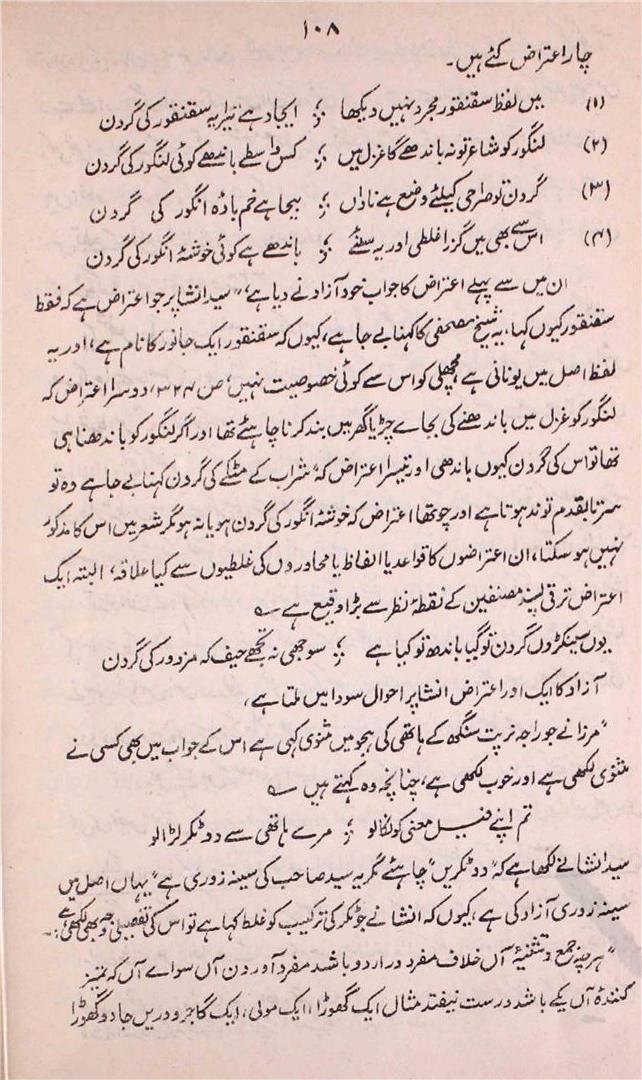 ۱۰۸
چار اعتراض کئے ہیں۔
(۱) میں لفظ سقنقور مجرد نہیں دیکھا ؛ ایجاد ہے تیرا یہ سقنقور کی گردن
(۲) لنگور کو شاعر تو نہ باندھے گا غزل میں ؛ کس واسطے باندھے کوئی لنگور کی گردن
(۳) گردن تو صراحی کیلئے وضع ہے ناداں ؛ بیجا ہے خم بادۂ انگور کی گردن
(۴) اس سے بھی میں گزرا غلطی اور یہ سنئے ؛ باندھے ہے کوئی خوشۂ انگور کی گردن
ان میں سے پہلے اعتراض کا جواب خود آزاد نے دیا ہے، "سید انشا پر جو اعتراض ہے کہ فقط
سقنقور کیوں کہا، یہ شیخ مصحفی کا کہنا بے جا ہے، کیوں کہ سقنقور ایک جانور کا نام ہے، اور یہ
لفظ اصل میں یونانی ہے مچھلی کو اس سے کوئی خصوصیت نہیں، ص ۳۲۷، دوسرا اعتراض کہ
لنگور کو غزل میں باندھنے کی بجاے چڑیا گھر میں بند کرنا چاہئے تھا اور اگر لنگور کو باندھنا ہی
تھا تو اس کی گردن کیوں باندھی اور تیسرا اعتراض کہ "شراب کے مٹکے کی گردن کہنا بے جا ہے وہ تو
سرتا بقدم توند ہوتا ہے اور چوتھا اعتراض کہ خوشۂ انگور کی گردن ہو یا نہ ہو مگر شعر میں اس کا مذکور
نہیں ہو سکتا، ان اعتراضوں کا قواعد یا الفاظ یا محاوروں کی غلطیوں سے کیا علاقہ، البتہ ایک
اعتراض ترقی پسند مصنفین کے نقطۂ نظر سے بڑا وقیع ہے ؎
یوں سینکڑوں گردن تو گیا باندھ تو کیا ہے ؛ سوجھی نہ تجھے حیف کہ مزدور کی گردن
آزاد کا ایک اور اعتراض انشا پر احوال سودا میں ملتا ہے،
"مرزا نے جو راجہ نرپت سنگھ کے ہاتھی کی ہجو میں مثنوی کہی ہے اس کے جواب میں بھی کسی نے
مثنوی لکھی ہے اور خوب لکھی ہے، چنانچہ وہ کہتے ہیں ؎
تم اپنے فیل معنی کو نکالو ؛ مرے ہاتھی سے دو ٹکر لڑا لو
سید انشا نے لکھا ہے کہ "دو ٹکریں" چاہئے مگر یہ سید صاحب کی سینہ زوری ہے" یہاں اصل میں
سینہ زوری آزاد کی ہے، کیوں کہ انشا نے جو ٹکر کی ترکیب کو غلط کہا ہے تو اس کی تفصیلی وجہ بھی لکھی ہے:۔
"ہر چند جمع و تثنیۂ آں خلاف مفرد در اردو باشد مفرد آوردن آں سواے آں کہ تمیز
کنندۂ آں یکے باشد درست نیفتد مثال ایک گھوڑا، ایک مولی، ایک گاجر و دریں جا دو گھوڑا